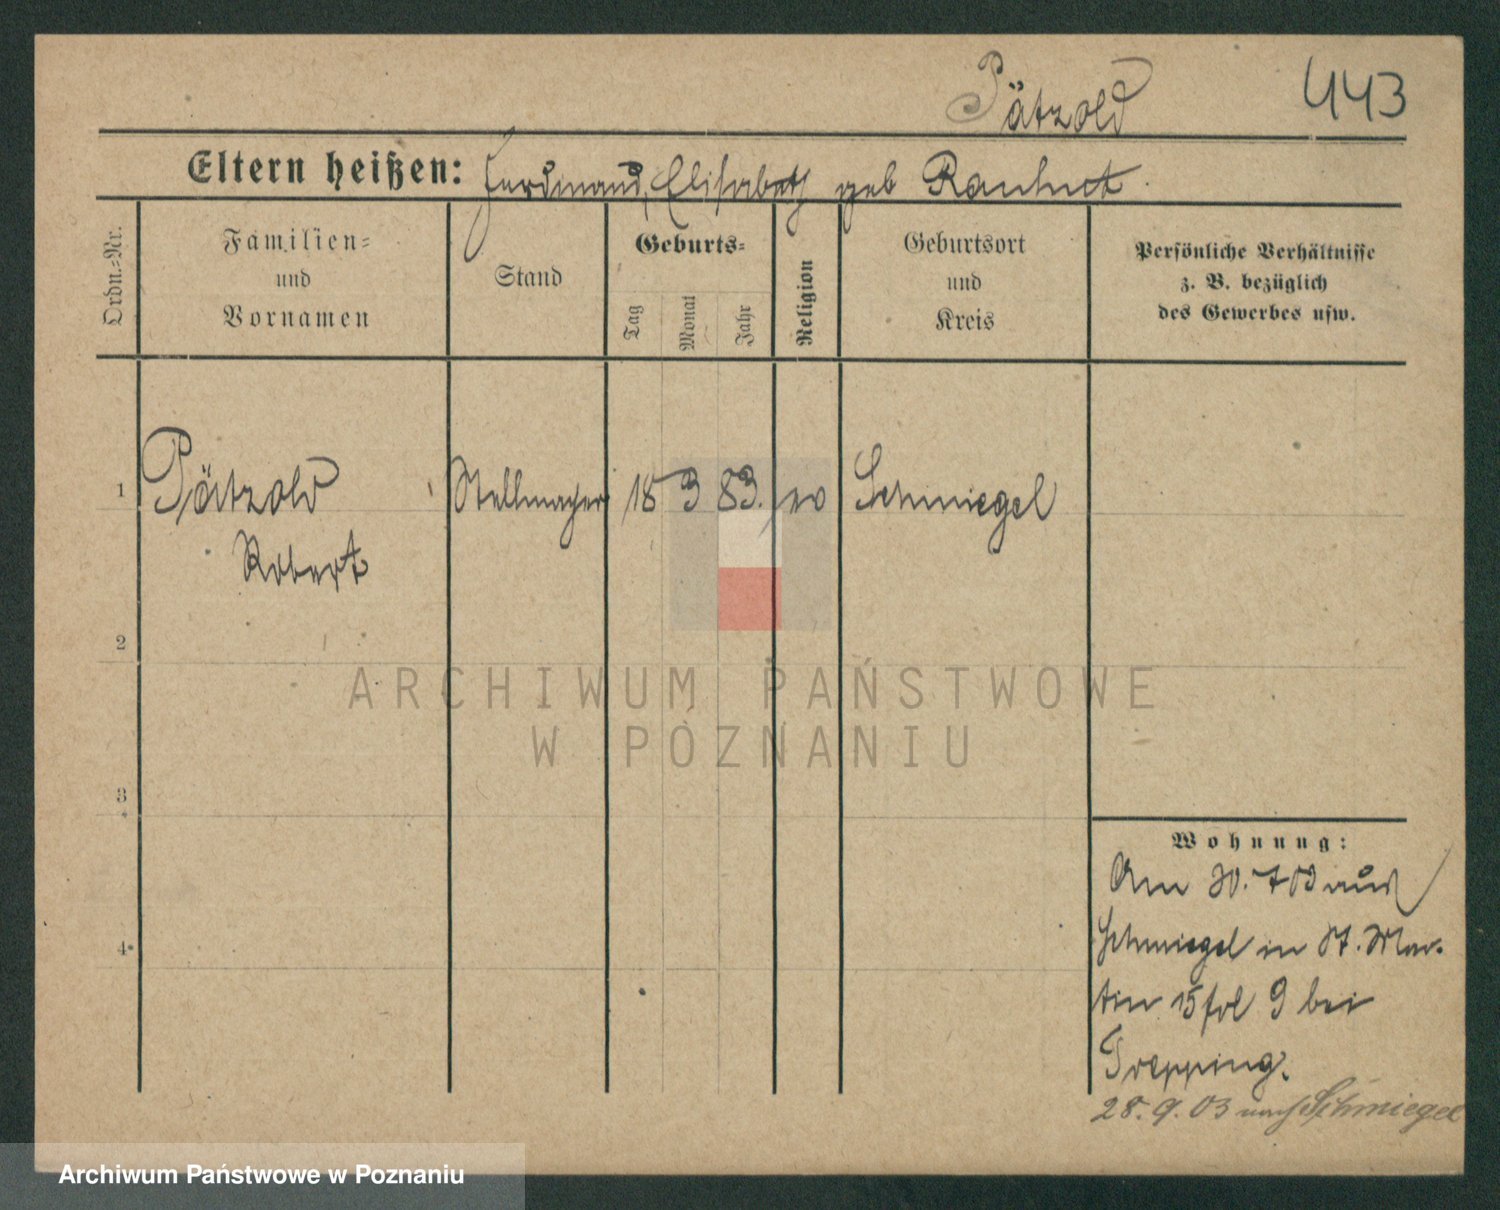 Pätzold 443
Eltern heißen: Ferdinand, Elisabeth geb Rauhut
Ordn.=Nr.
Familien=
und
Vornamen
Stand
Geburts=
Tag
Monat
Jahr
Religion
Geburtsort
und
Kreis
Persönliche Verhältnisse
z. B. bezüglich
des Gewerbes usw.
1 Pätzold Stellmacher 18 3 83. Schmiegel
Robert
2
3
4
Wohnung:
Am 30. 7 03 aus
Schmiegel in St. Mar-
tin 15 fol 9 bei
28. 9. 03 nach Schmiegel
ARCHIWUM PAŃSTWOWE
W POZNANIU
Archiwum Państwowe w Poznaniu